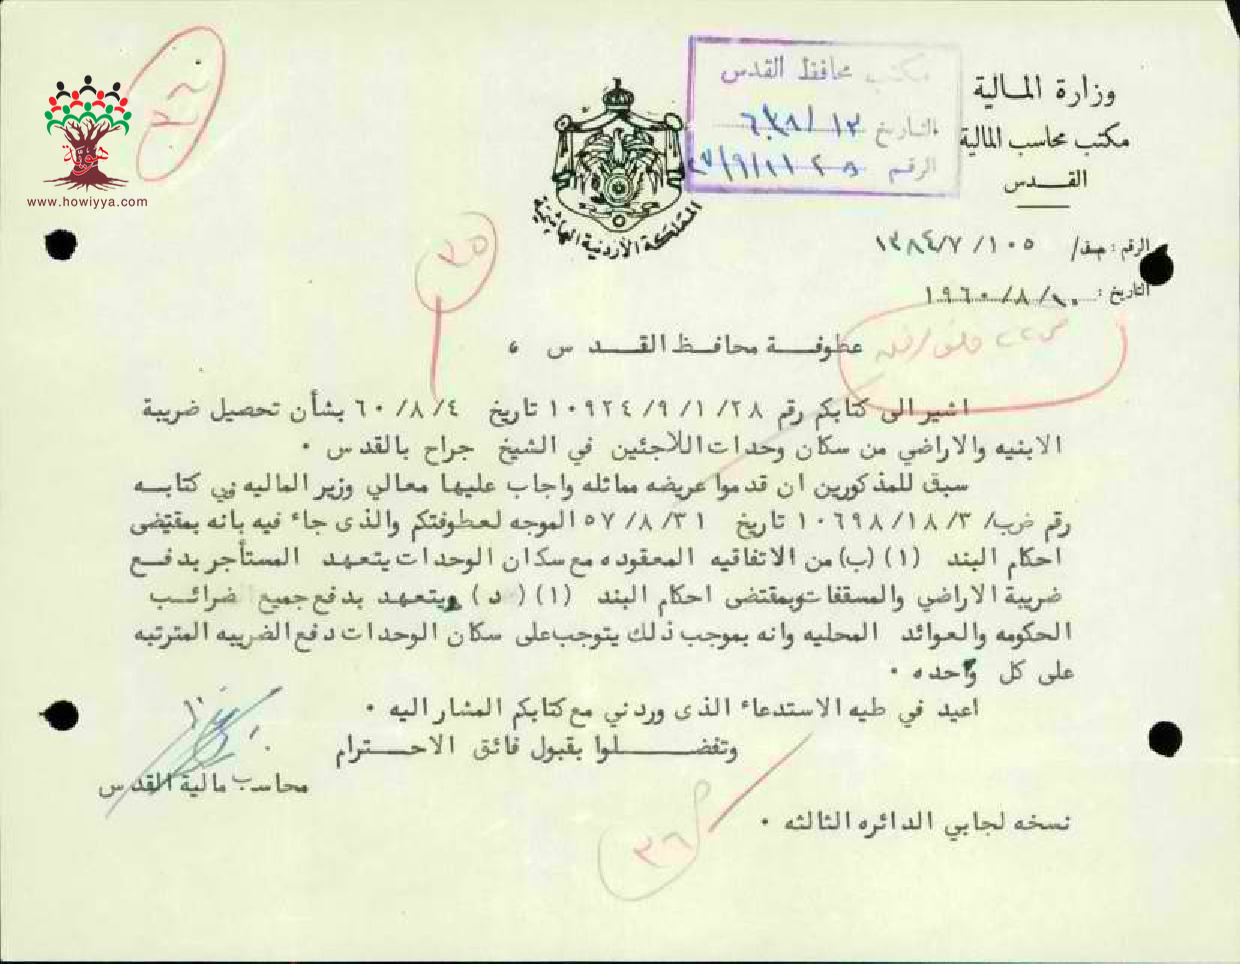 وزارة المالية
مكتب محاسب المالية
القدس
مكتب محافظ القدس
التاريخ
الرقم
المملكة الأردنية الهاشمية
www.howiyya.com
الرقم : ١٠٥ /٧ /١٣٨٤
التاريخ : ١٠ /٨ /١٩٦٠
٣٥
عطوفة محافظ القدس ،
اشير الى كتابكم رقم ٢٨ /١ /٩ /١٠٩٢٤ تاريخ ٤ /٨ /٦٠ بشأن تحصيل ضريبة
الابنيه والاراضي من سكان وحدات اللاجئين في الشيخ جراح بالقدس .
سبق للمذكورين ان قدموا عريضه مماثله واجاب عليها معالي وزير الماليه في كتابه
رقم ضرب/ ٣ /١٨ /١٠٦٩٨ تاريخ ٣١ /٨ /٥٧ الموجه لعطوفتكم والذى جاء فيه بانه بمقتضى
احكام البند (١) (ب) من الاتفاقيه المعقوده مع سكان الوحدات يتعهد المستأجر بدفع
ضريبة الاراضي والمسقفات وبمقتضى احكام البند (١) (د) يتعهد بدفع جميع ضرائب
الحكومه والعوائد المحليه وانه بموجب ذلك يتوجب على سكان الوحدات دفع الضريبه المترتبه
على كل واحده .
اعيد في طيه الاستدعاء الذى وردني مع كتابكم المشار اليه .
وتفضلوا بقبول فائق الاحترام
محاسب مالية القدس
نسخه لجابي الدائره الثالثه .
٣٦